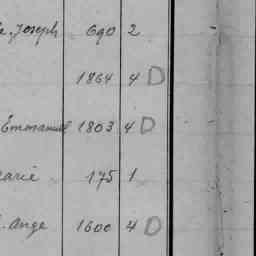 e. Joseph 690 2
1864 4 D
Emmanuel 1803 4 D
arie 175 1
. Ange 1600 4 D